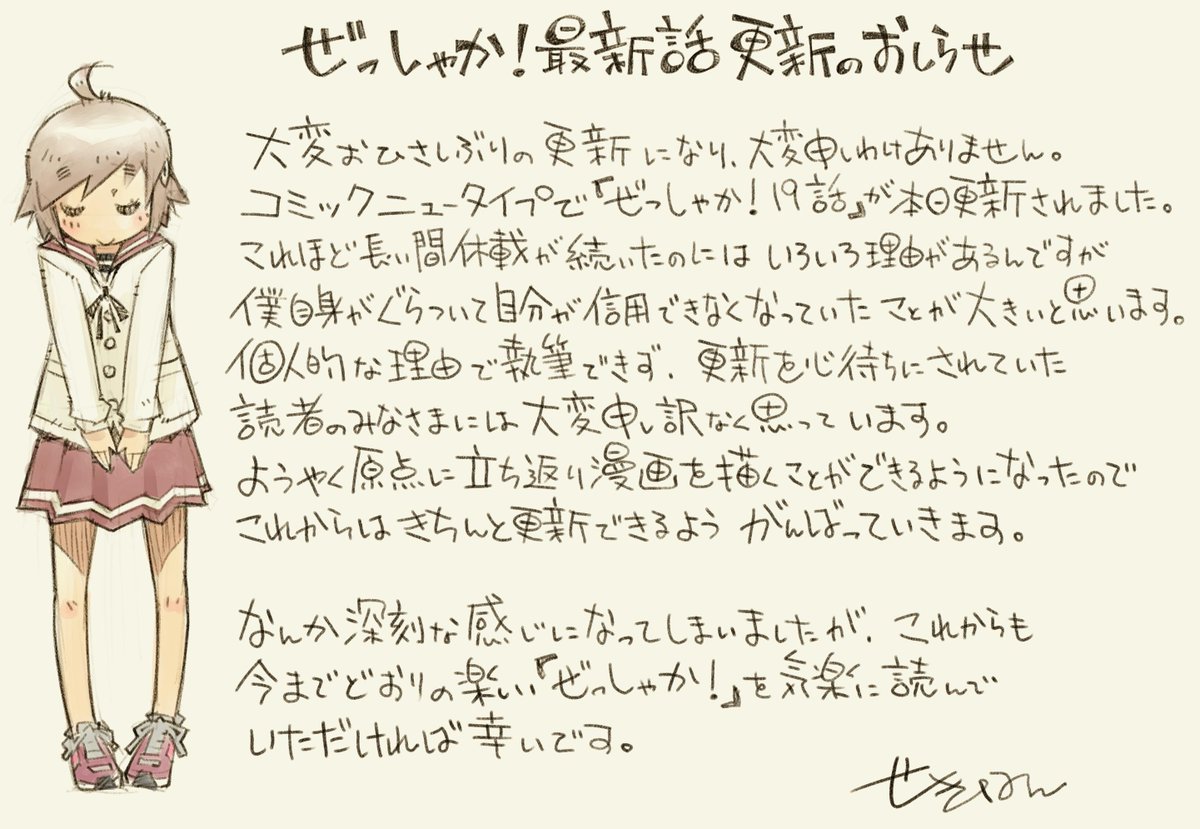 ぜっしゃか!最新話更新のおしらせ
大変おひさしぶりの更新になり、大変申しわけありません。
コミックニュータイプで『ぜっしゃか!19話』が本日更新されました。
これほど長い間休載が続いたのにはいろいろ理由があるんですが
僕自身がぐらついて自分が信用できなくなっていたことが大きいと思います。
個人的な理由で執筆できず、更新を心待ちにされていた
読者のみなさまには大変申し訳なく思っています。
ようやく原点に立ち返り漫画を描くことができるようになったので
これからはきちんと更新できるようがんばっていきます。
なんか深刻な感じになってしまいましたが、これからも
今までどおりの楽しい『ぜっしゃか!』を気楽に読んで
いただければ幸いです。